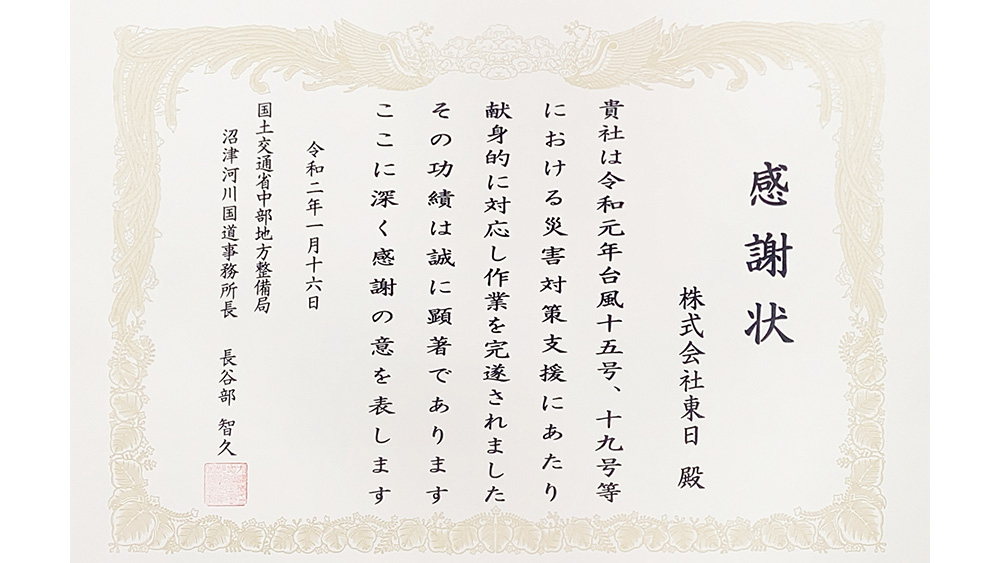 感謝状
株式会社東日 殿
貴社は令和元年台風十五号、十九号等
における災害対策支援にあたり
献身的に対応し作業を完遂されました
その功績は誠に顕著であります
ここに深く感謝の意を表します
令和二年一月十六日
国土交通省中部地方整備局
沼津河川国道事務所長 長谷部 智久